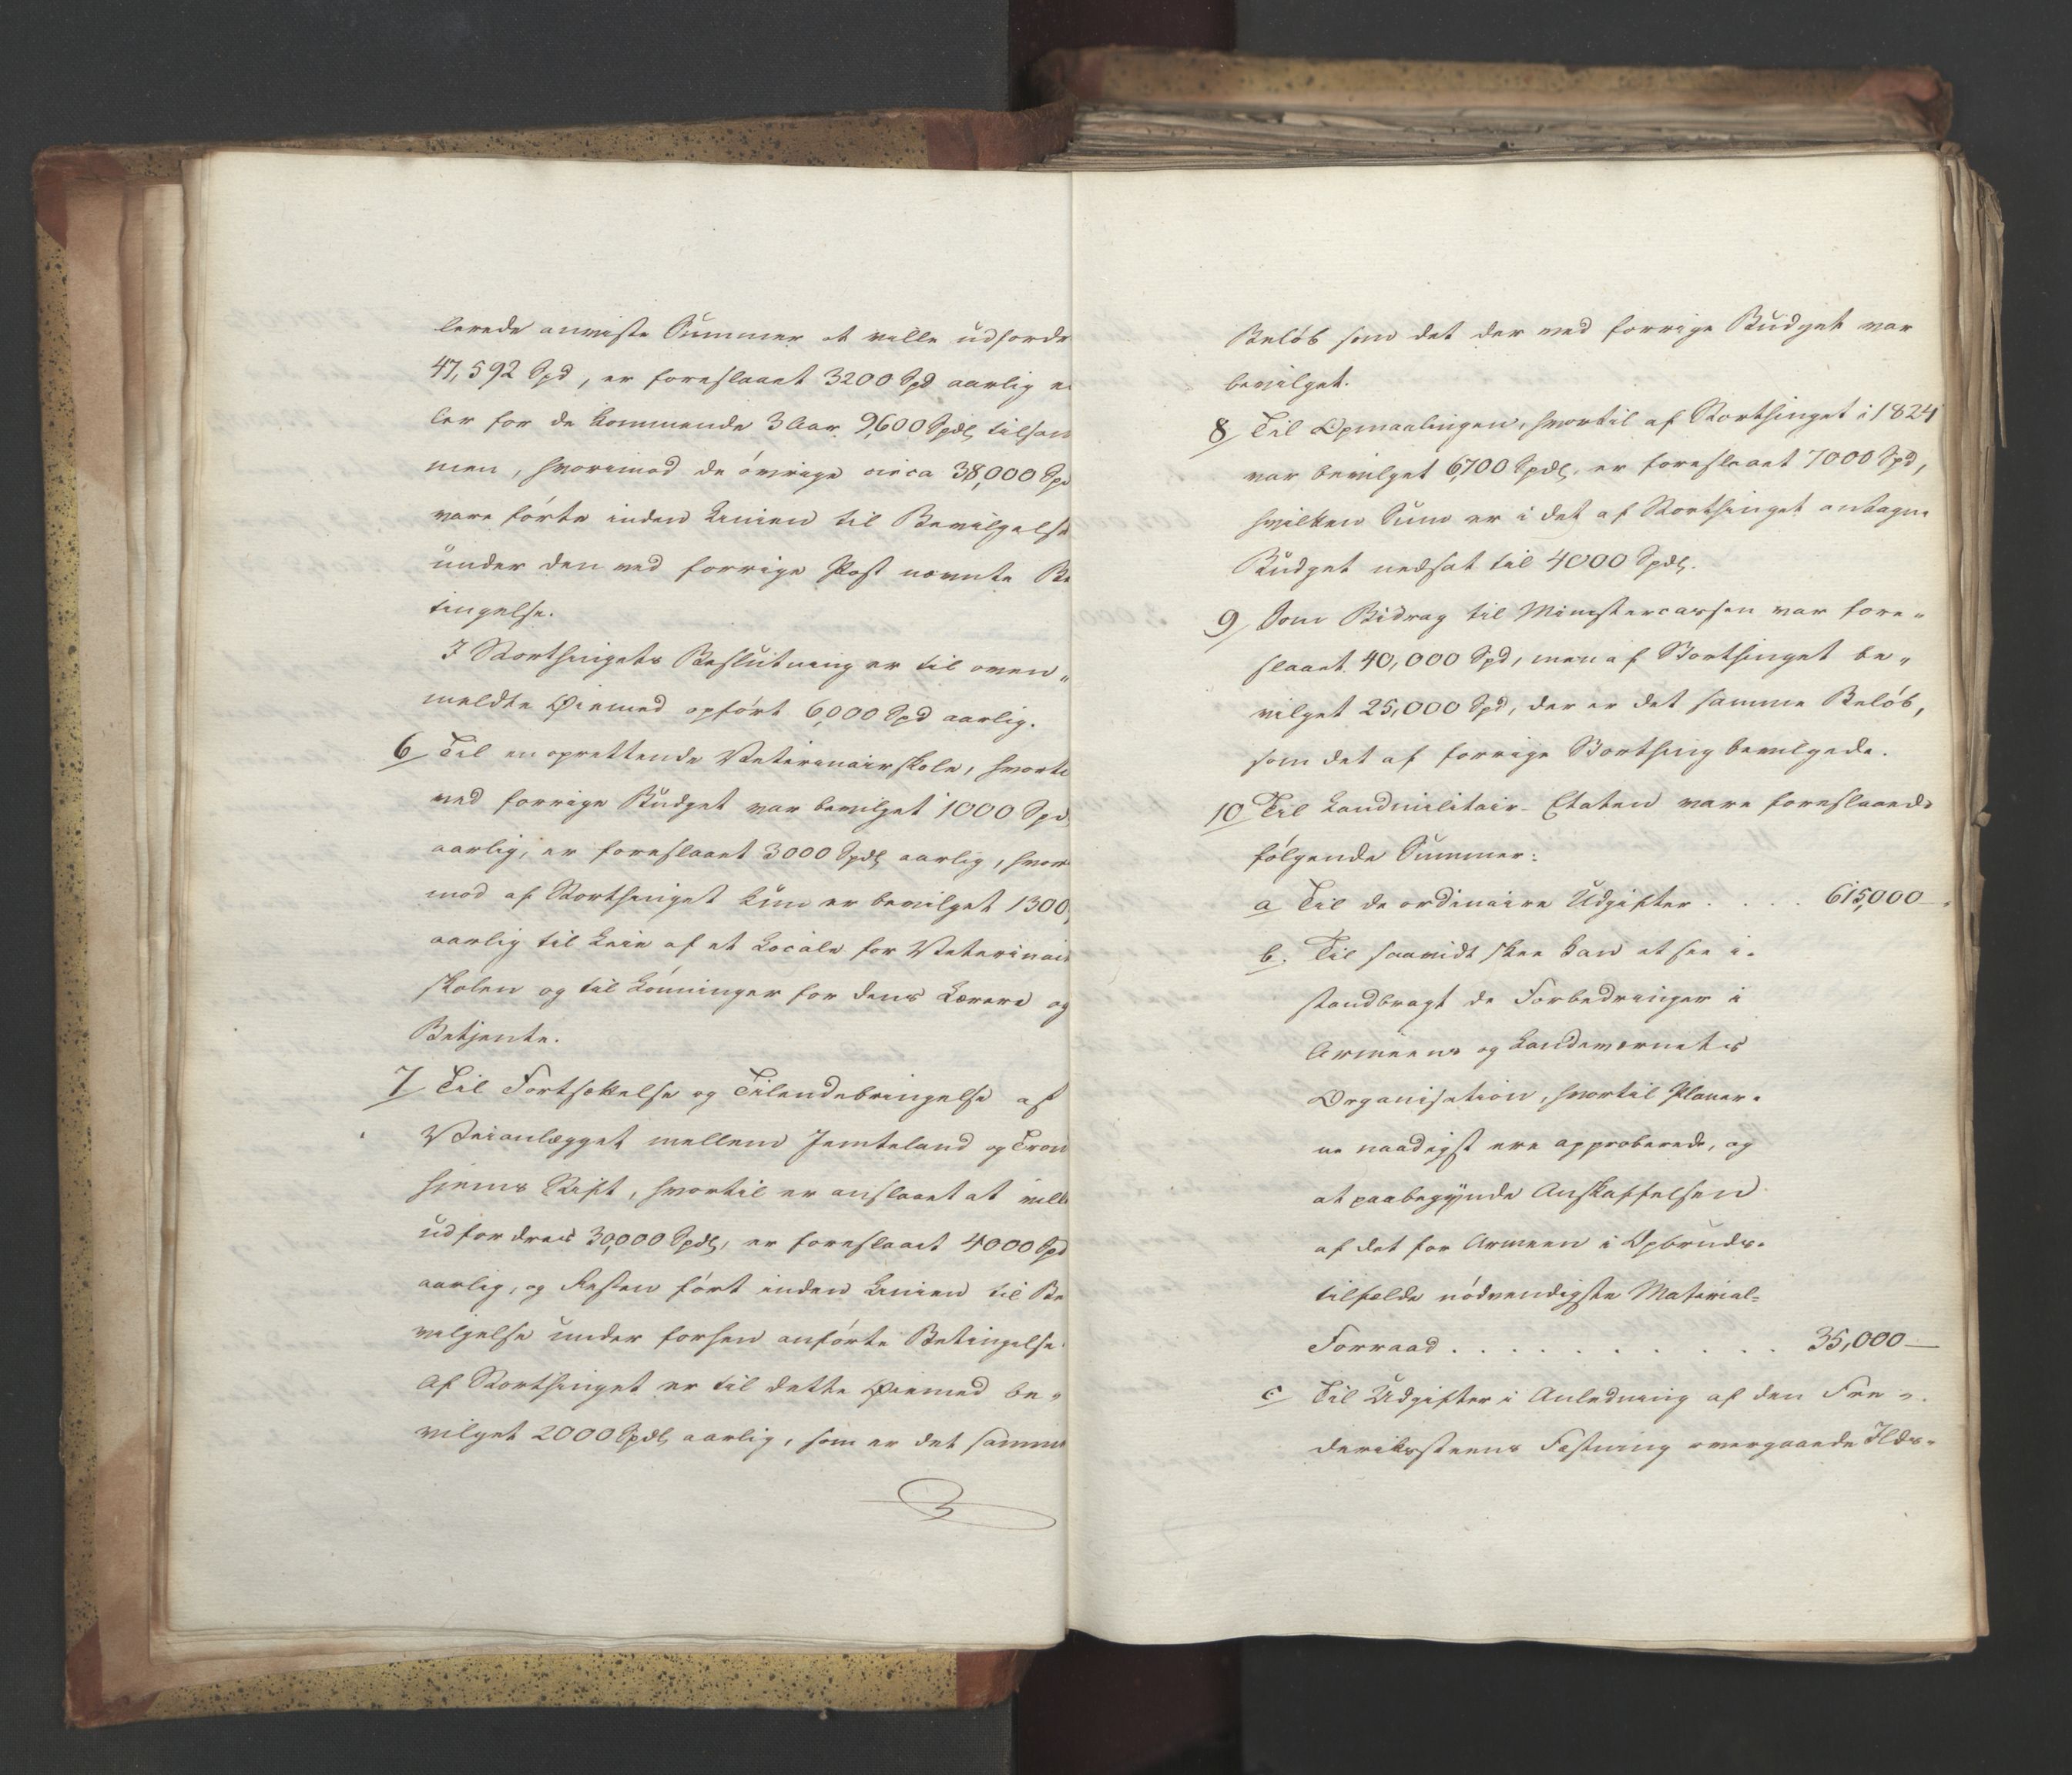 lerede anviste Summer at ville udfordr
47,592 Spd, er foreslaaet 3200 Spd aarlig el
ler for de kommende 3 Aar 9,600 Spdlr tilsam
men, hvorimod de øvrige circa 38,000 Spd
vare førte inden Linien til Bevilgelse
under den ved forrige Post nævnte Be
tingelse.
I Storthingets Beslutning er til oven„
meldte Øiemed opført 6,000 Spd aarlig.
6 Til en oprettende Veterinairskole, hvorti
ved forrige Budget var bevilget 1000 Spd
aarlig, er foreslaaet 3000 Spdlr aarlig, hvor
mod af Storthinget kun er bevilget 1300,
aarlig til Leie af et Locale for Veterinair
skolen og til Lønninger for dens Lærere og
Betjente.
7 Til Fortsættelse og Tilendebringelse af
Veianlægget mellem Jemteland og Tron
hjems Stift, hvortil er anslaaet at ville
udfordres 30,000 Spdlr, er foreslaaet 4000 Spd
aarlig, og Resten ført inden Linien til Be
vilgelse under forhen anførte Betingelse.
Af Storthinget er til dette Øiemed be„
vilget 2000 Spdlr aarlig, som er det samme
Beløb som det der ved forrige Budget var
bevilget.
8 Til Opmaalingen, hvortil af Storthinget i 1824
var bevilget 6,700 Spdlr, er foreslaaet 7000 Spd,
hvilken Sum er i det af Storthinget antagne
Budget nedsat til 4000 Spdlr.
9 Som Bidrag til Ministercassen var fore„
slaaet 40,000 Spd, men af Storthinget be„
vilget 25,000 Spd, der er det samme Beløb,
som det af forrige Storthing bevilgede.
10 Til Landmilitair-Etaten vare foreslaaede
følgende Summer:
a Til de ordinaire Udgifter . . . . 615,000 —
b. Til saavidt skee kan at see i„
standbragt de Forbedringer i
Armeens og Landeværnets
Organisation, hvortil Planer„
ne naadigst ere approberede, og
at paabegynde Anskaffelsen
af det for Armeen i Opbruds„
tilfælde nødvendigste Material-
Forraad . . . . . . . . . . . 35,000 —
c Til Udgifter i Anledning af den Fre„
deriksteens Fæstning overgaaede Ilds„